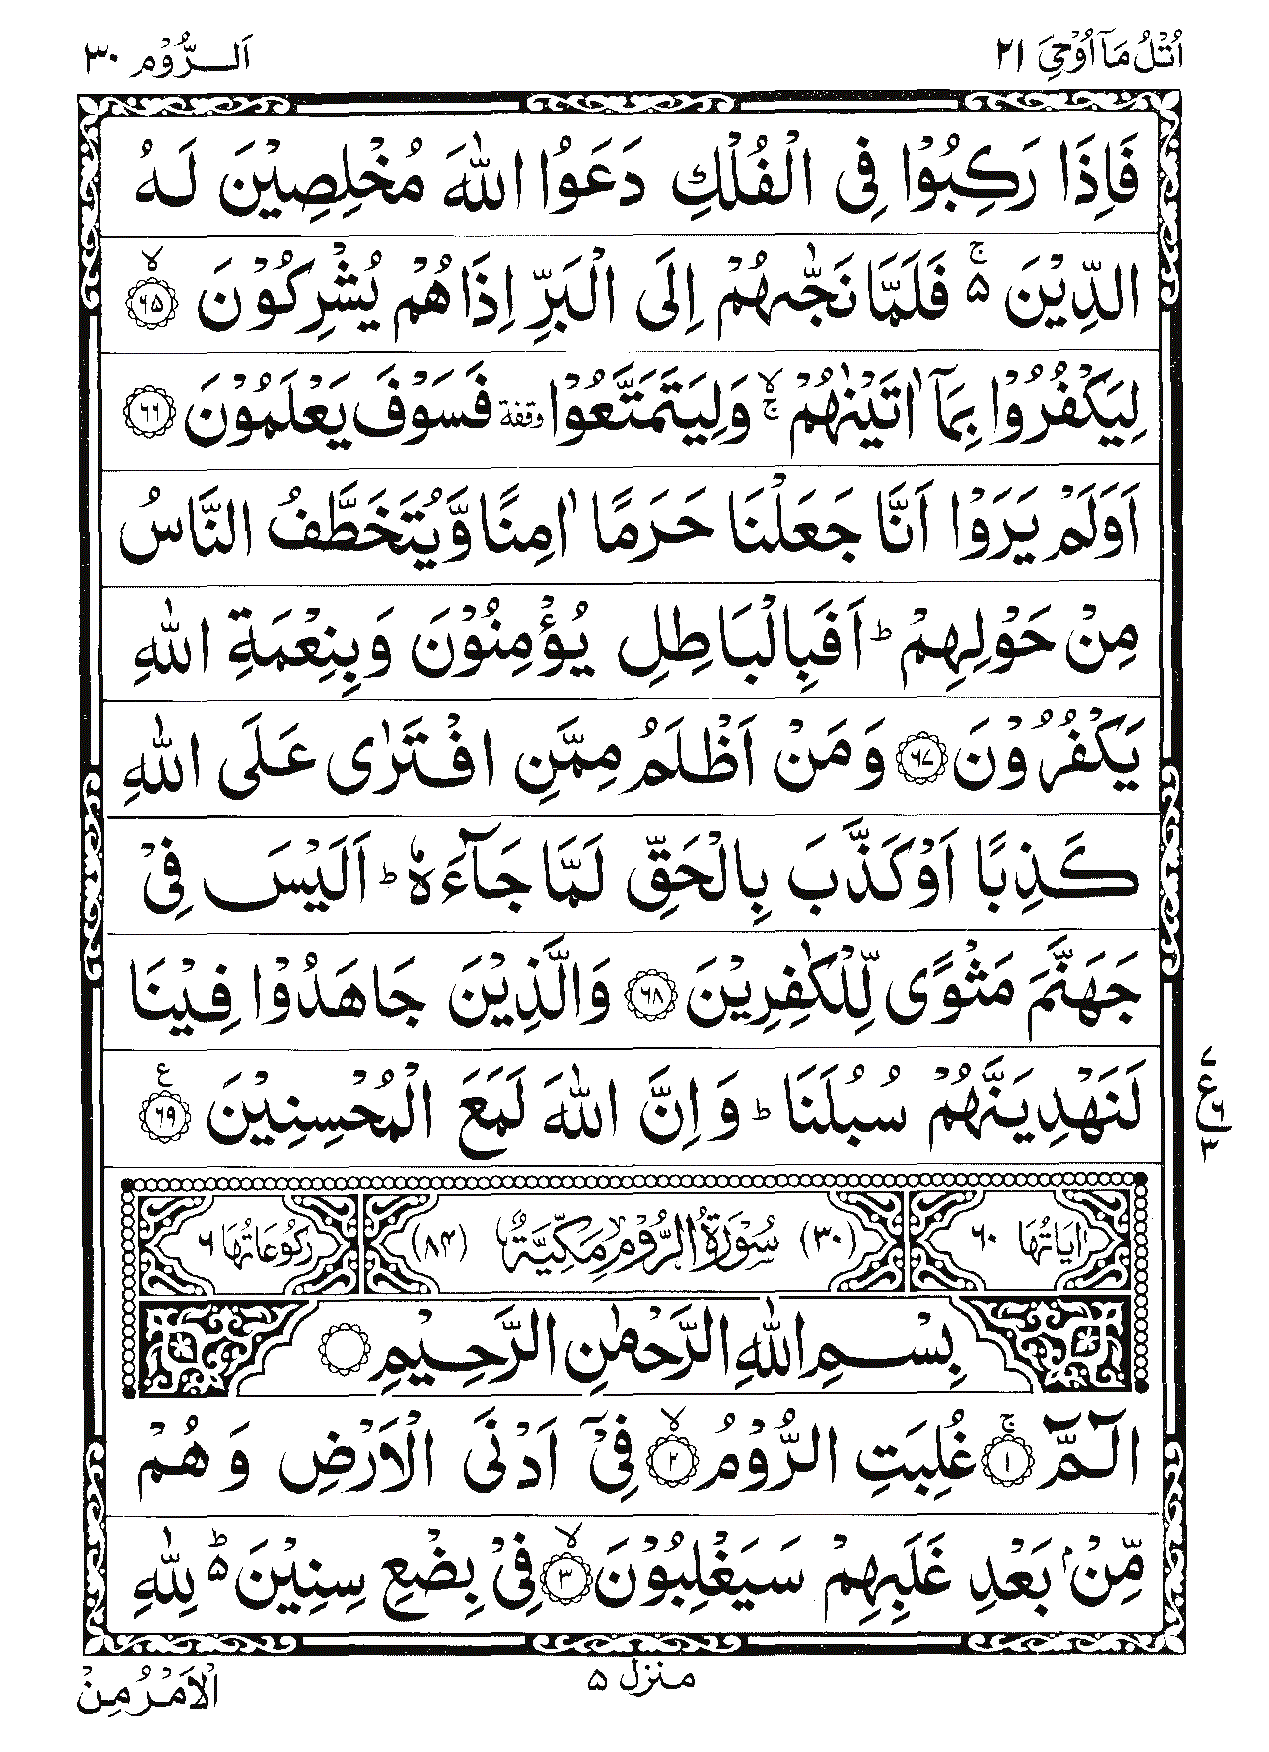 اُتْلُ مَآ اُوْحِیَ ۲۱
اَلرُّوْم ۳۰
فَاِذَا رَكِبُوْا فِی الْفُلْكِ دَعَوُا اللّٰهَ مُخْلِصِیْنَ لَهُ
الدِّیْنَ ۚ۬ فَلَمَّا نَجّٰىهُمْ اِلَی الْبَرِّ اِذَا هُمْ یُشْرِكُوْنَ ۙ‏﴿۶۵﴾
لِیَكْفُرُوْا بِمَاۤ اٰتَیْنٰهُمْ ۚۙ وَلِیَتَمَتَّعُوْا وقفة فَسَوْفَ یَعْلَمُوْنَ ﴿۶۶﴾
اَوَلَمْ یَرَوْا اَنَّا جَعَلْنَا حَرَمًا اٰمِنًا وَّیُتَخَطَّفُ النَّاسُ
مِنْ حَوْلِهِمْ ؕ اَفَبِالْبَاطِلِ یُؤْمِنُوْنَ وَبِنِعْمَةِ اللّٰهِ
یَكْفُرُوْنَ ﴿۶۷﴾ وَمَنْ اَظْلَمُ مِمَّنِ افْتَرٰی عَلَی اللّٰهِ
كَذِبًا اَوْ كَذَّبَ بِالْحَقِّ لَمَّا جَآءَهٗ ؕ اَلَیْسَ فِیْ
جَهَنَّمَ مَثْوًی لِّلْكٰفِرِیْنَ ﴿۶۸﴾ وَالَّذِیْنَ جَاهَدُوْا فِیْنَا
لَنَهْدِیَنَّهُمْ سُبُلَنَا ؕ وَاِنَّ اللّٰهَ لَمَعَ الْمُحْسِنِیْنَ ﴿۶۹﴾ ع
۷ ع ۶ ۳
اٰیَاتُهَا ۶۰ (۳۰) سُوْرَةُ الرُّوْمِ مَكِّیَّةٌ (۸۴) رُكُوْعَاتُهَا ۶
بِسْمِ اللّٰهِ الرَّحْمٰنِ الرَّحِیْمِ
الٓمّٓ ۚ‏﴿۱﴾ غُلِبَتِ الرُّوْمُ ۙ‏﴿۲﴾ فِیْۤ اَدْنَی الْاَرْضِ وَهُمْ
مِّنْۢ بَعْدِ غَلَبِهِمْ سَیَغْلِبُوْنَ ۙ‏﴿۳﴾ فِیْ بِضْعِ سِنِیْنَ ؕ۬ لِلّٰهِ
منزل ۵
الْاَمْرُ مِنْ